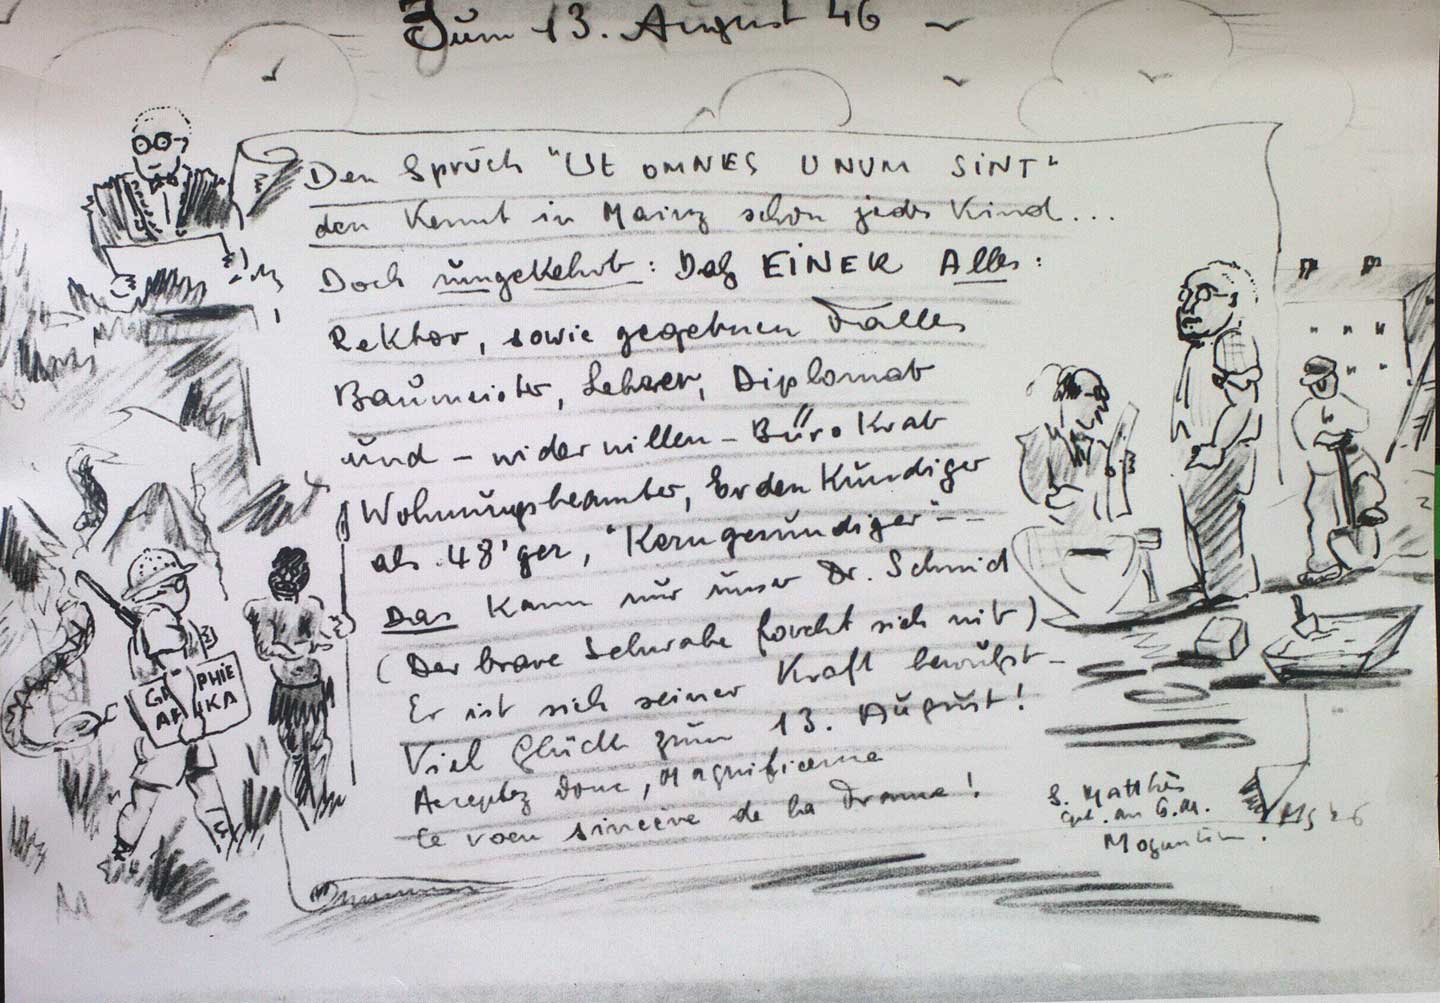 Zum 13. August 46
Den Spruch "Ut OMNES UNUM SINT"
den Kennt in Mainz schon jedes Kind...
Doch umgekehrt: Daß EINER Alles:
Rektor, sowie gegebnen Falles
Baumeister, Lehrer, Diplomat
und – wider willen – BüroKrat
Wohnungsbeamter, ErdenKundiger
als 48'ger, "Kerngesundiger" --
Das Kann nur unser Dr. Schmid
(Der brave Schwabe forcht sich nit)
Er ist sich seiner Kraft bewußt –
Viel Glück zum 13. August!
Acceptez donc, Magnificence
Ce voeu sincère de la France!
GA PHIE
AF IKA
S. Matthis
G.M.
Moguntium.
46